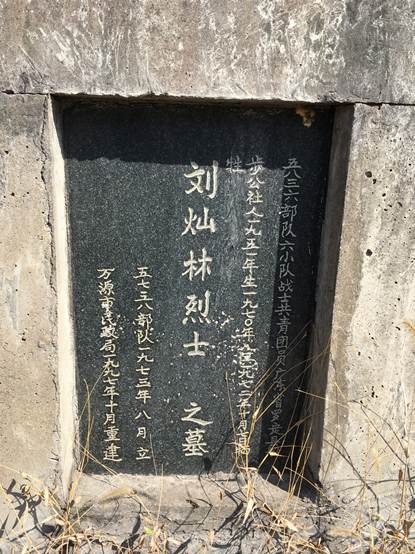 五八三六部队六小队战士共青团员广东省罗定县
步公社人一九五一年生一九七〇年 一九七二年十月
牲
刘灿林烈士 之墓
五七三八部队一九七三年八月立
万源市民政局一九九七年十月重建